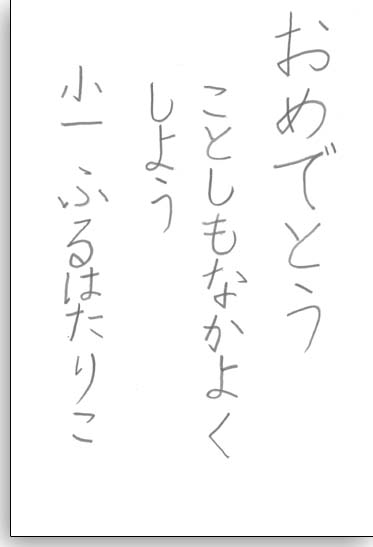 おめでとう
ことしもなかよく
しよう
小一 ふるはたりこ